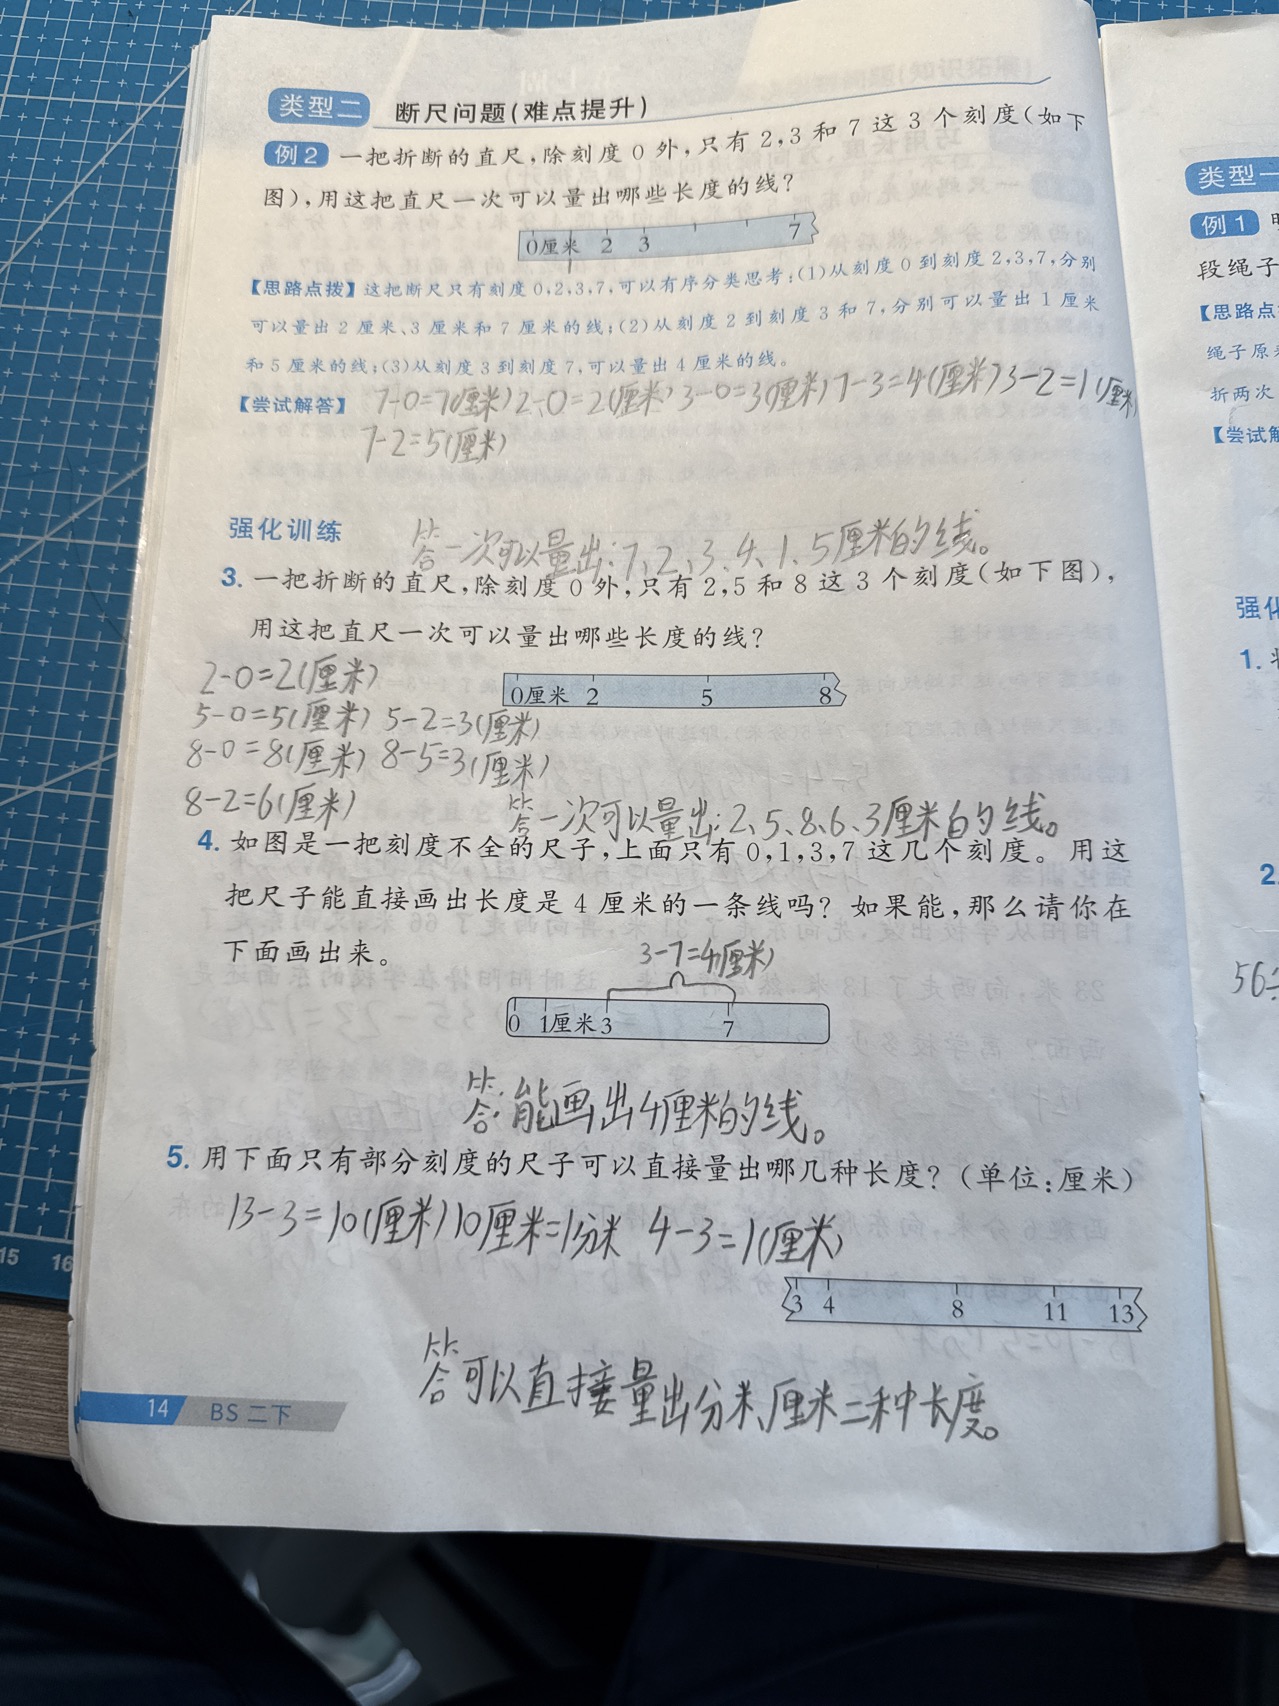 类型二 断尺问题(难点提升)
例2 一把折断的直尺,除刻度0外,只有2,3和7这3个刻度(如下
图),用这把直尺一次可以量出哪些长度的线?
0厘米 2 3 7
【思路点拨】这把断尺只有刻度0,2,3,7,可以有序分类思考:(1)从刻度0到刻度2,3,7,分别
可以量出2厘米、3厘米和7厘米的线;(2)从刻度2到刻度3和7,分别可以量出1厘米
和5厘米的线;(3)从刻度3到刻度7,可以量出4厘米的线。
【尝试解答】 7-0=7(厘米) 2-0=2(厘米) 3-0=3(厘米) 7-3=4(厘米) 3-2=1(厘米)
7-2=5(厘米)
强化训练 答:一次可以量出:7、2、3、4、1、5厘米的线。
3. 一把折断的直尺,除刻度0外,只有2,5和8这3个刻度(如下图),
用这把直尺一次可以量出哪些长度的线?
2-0=2(厘米)
0厘米 2 5 8
5-0=5(厘米) 5-2=3(厘米)
8-0=8(厘米) 8-5=3(厘米)
8-2=6(厘米)
答:一次可以量出:2、5、8、6、3厘米的线。
4. 如图是一把刻度不全的尺子,上面只有0,1,3,7这几个刻度。用这
把尺子能直接画出长度是4厘米的一条线吗?如果能,那么请你在
下面画出来。
3-7=4(厘米)
0 1厘米 3 7
答:能画出4厘米的线。
5. 用下面只有部分刻度的尺子可以直接量出哪几种长度?(单位:厘米)
13-3=10(厘米) 10厘米=1分米 4-3=1(厘米)
3 4 8 11 13
答:可以直接量出分米、厘米二种长度。
14 BS 二下
类型一
例1
段绳子
【思路点
绳子原
折两次
【尝试解
强化
1.
2.
56÷
15 16